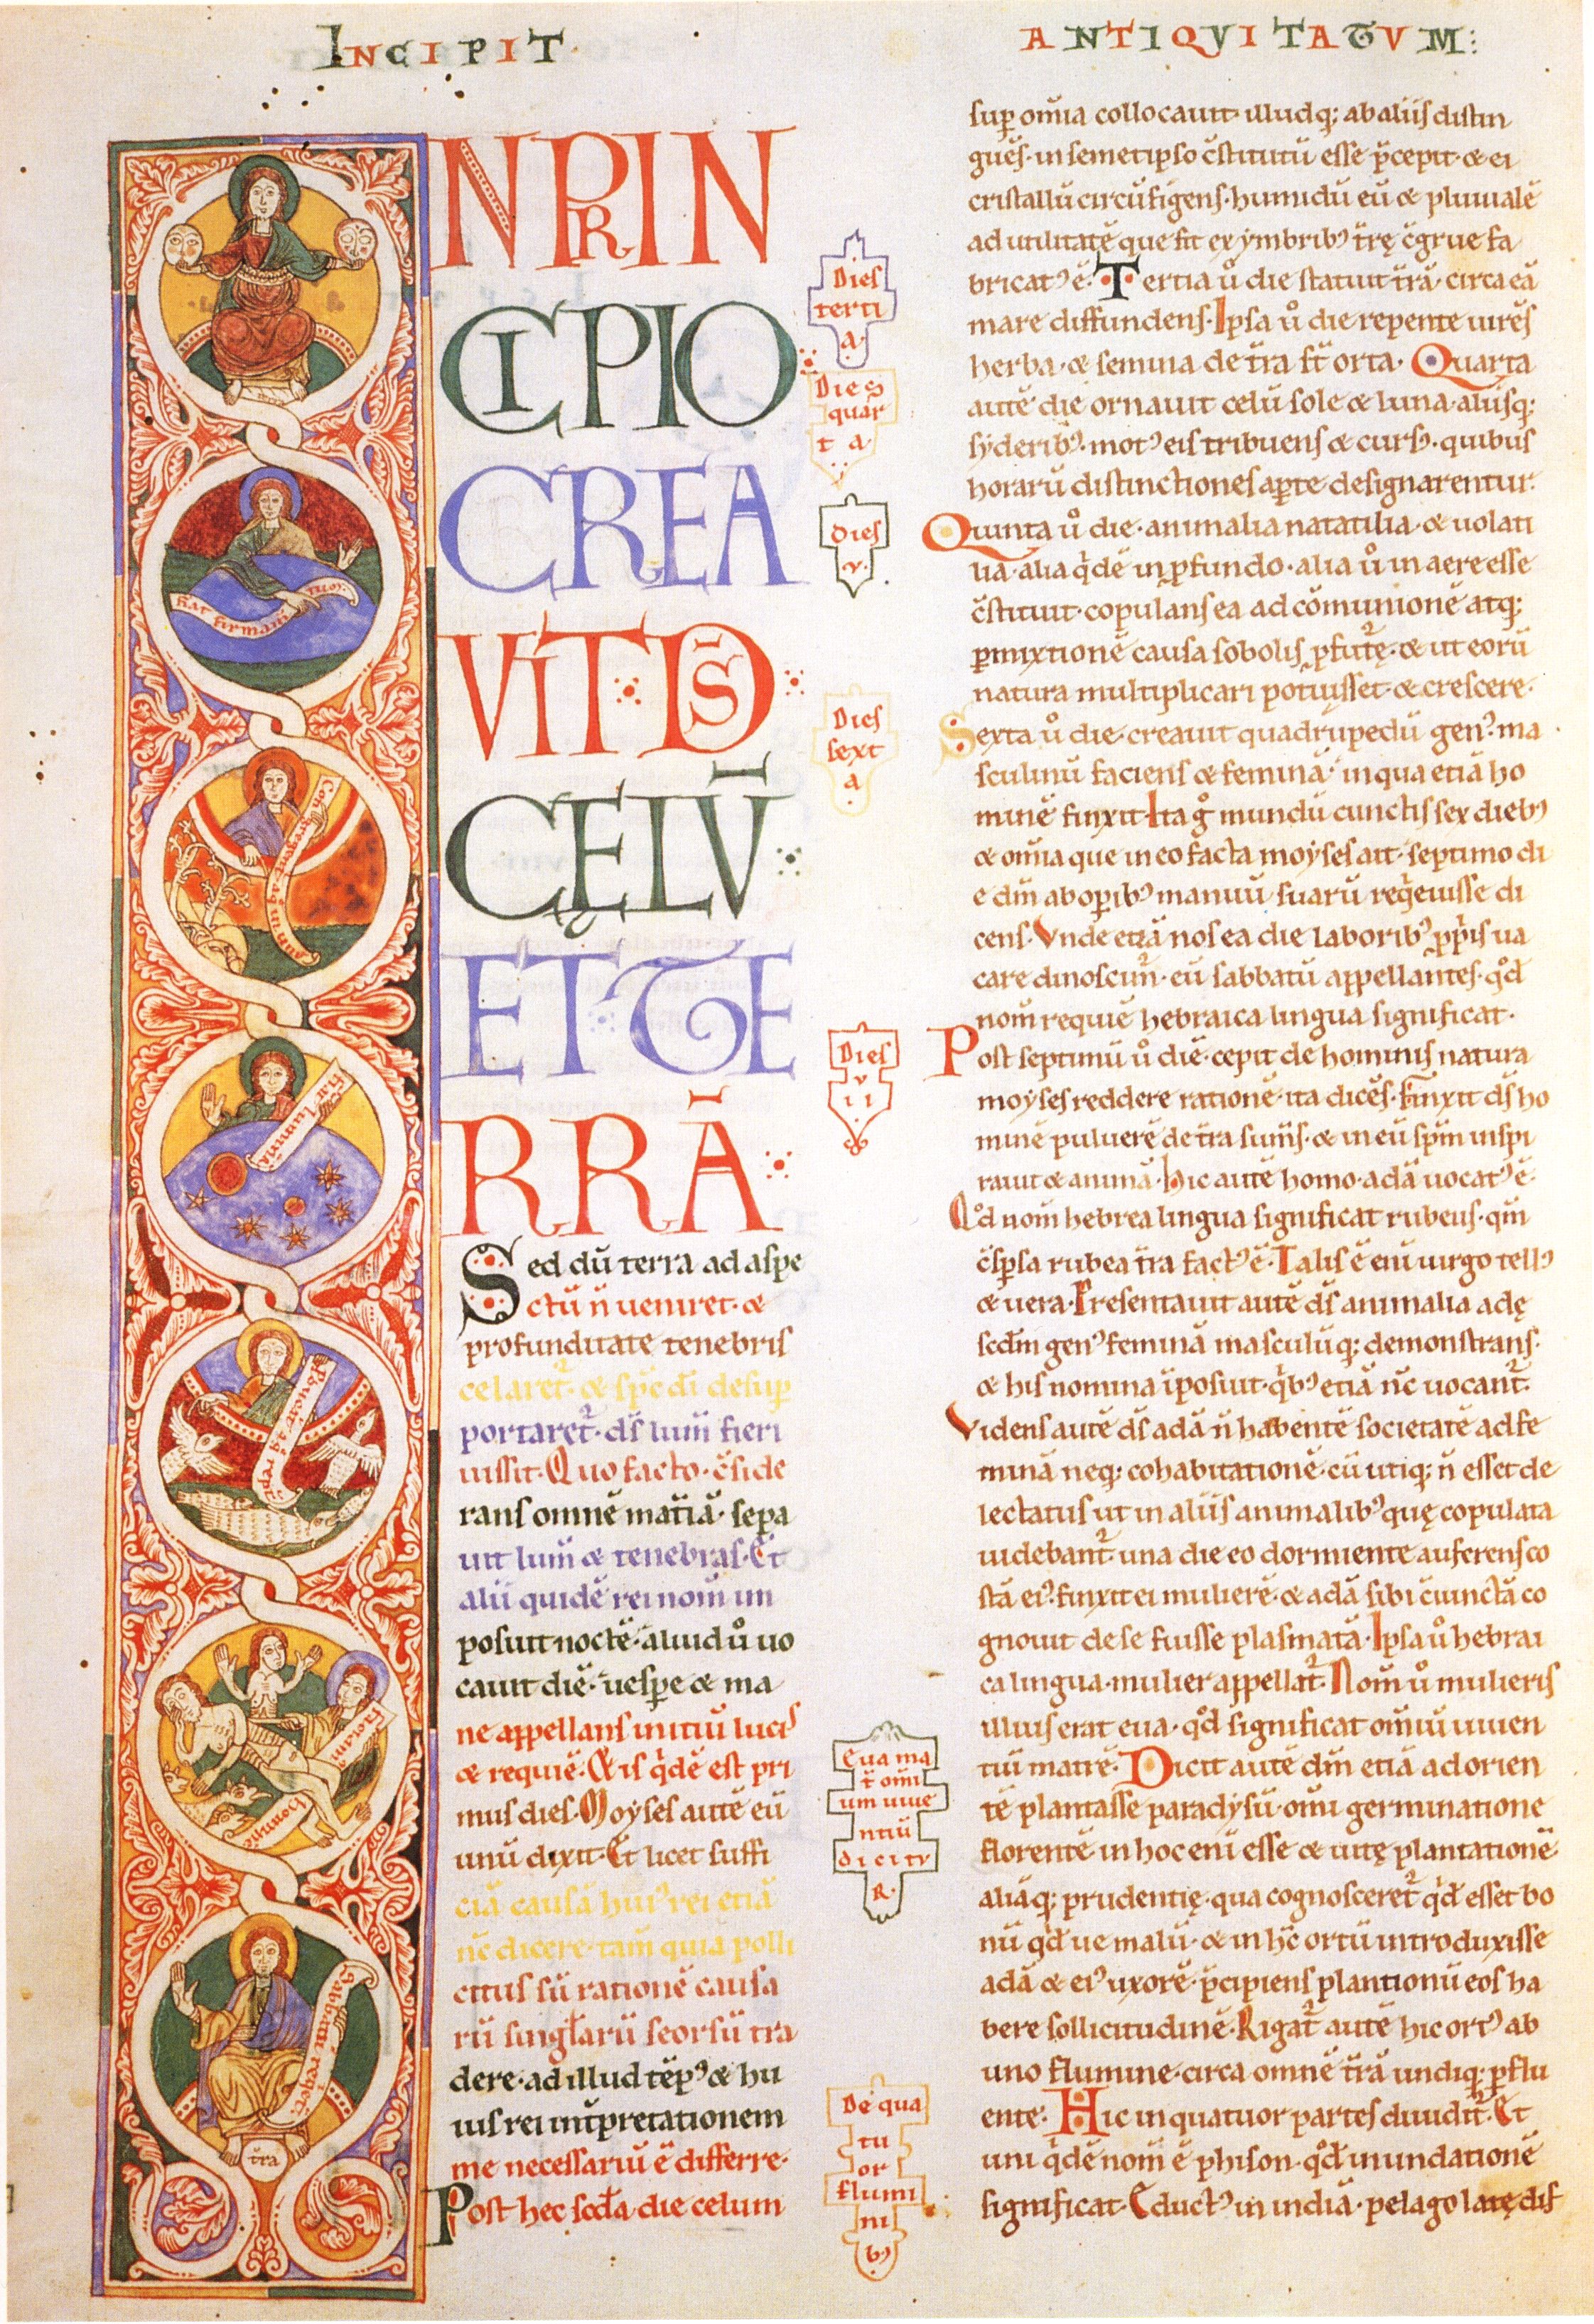 INCIPIT
ANTIQVITATVM:
NPRIN
CIPIO
CREA
VIT DS̄
CELV̄
ET TE
RRĀ
Sed dū terra ad aspe
ctū n̄ ueniret · &
profunditate tenebris
celaret᷑ · & sp̄c dī desup̱
portaret᷑ · ds̄ lum̄ fieri
iussit · Quo facto · c̄side
rans omnē mat̄iā · sepa
uit lum̄ & tenebras · Et
alii quidē rei nom̄ im
posuit noctē · aliud ů uo
cauit diē · uesp̱e & ma
ne appellans initiū lucis
& requiē · & is q̇dē est pri
mus dies · Moyses autē eū
unū dixit · Et licet suffi
ciā causā hui᾽ rei etiā
nc̄ dicere · tam̄ quia polli
citus sū rationē causa
rū singl̄arū seorsū tra
dere · ad illud tēp᾽ & hu
ius rei int̄pretationem
me necessariū ē differre ·
Post hec sc̄da die celum
sup̱ om̄ia collocauit · illudq; ab aliis distin
guēs · in semetipso c̄stitutū esse p̄cepit · & ei
cristallū circūfigens · humidū eū & pluuialē
ad utilitatē que fit ex ymbrib᾽ t̄rę c̄grue fa
bricat᾽ ē · Tertia ů die statuit t̄rā · circa eā
mare diffundens · Ipsa ů die repente uirēs
herba · & semina de t̄ra st̄ orta · Quarta
autē die ornauit celū sole & luna · aliisq;
syderib᾽ · mot᾽ eis tribuens & curs᾽ · quibus
horarū distinctiones ap̱te designarentur ·
Quinta ů die · animalia natatilia · & uolati
lia · alia q̇dē in p̱fundo · alia ů in aere esse
c̄stituit · copulans ea ad cōmunionē atq;
p̱mixtionē causa sobolis p̱fut᷑ę · & ut eorū
natura multiplicari potuisset · & crescere ·
Sexta ů die · creauit quadrupedū gen᾽ · ma
sculinū faciens & feminā · in qua etiā ho
minē finxit · Ita g̊ mundū cunctis sex dieb᾽
& om̄ia que in eo facta moyses ait · septimo di
e dm̄ ab op̱ib᾽ manuū suarū reqeuisse di
cens · Vnde etiā nos ea die laborib᾽ p̱p̄is ua
care dinoscun᷑ · eū sabbatū appellantes · q̊d
nom̄ requiē hebraica lingua significat ·
Post septimū ů diē · cepit de hominis natura
moyses reddere rationē · ita dicēs · Finxit ds̄ ho
minē puluerē de t̄ra sum̄s · & in eū sp̄m inspi
rauit & animā · hic autē homo · adā uocat᾽ ē ·
Q̊d nom̄ hebrea lingua significat rubeus · qm̄
c̄sp̱sa rubea t̄ra fact᾽ ē · Talis ē eni uirgo tell᾽
& uera · Presentauit autē ds̄ animalia adę
scd̄m gen᾽ feminā masculūq; demonstrans ·
& his nomina īposuit · q̇b᾽ etiā nc̄ uocant᷑ ·
Videns autē ds̄ adā n̄ habentē societatē ad fe
minā neq; cohabitationē · cū utiq; n̄ esset de
lectatus ut in aliis animalib᾽ quę copulata
uidebant᷑ · una die eo dormiente auferens co
stā ei᾽ · finxit ei mulierē · & adā sibi c̄iunctā co
gnouit de se fuisse plasmatā · Ipsa ů hebrai
ca lingua · mulier appellat᷑ · Nom̄ ů mulieris
illius erat eua · q̊d significat om̄iū uiuen
tiū matrē · Dicit autē dm̄ etiā ad orien
tē plantasse paradysū · om̄i germinatione
florentē · in hoc enī esse & uitę plantationē
aliāq; prudentię · qua cognosceret᷑ q̇d esset bo
nū q̇d ue malū · & in hc̄ ortū introduxisse
adā & ei᾽ uxorē · p̄cipiens plantionū eos ha
bere sollicitudinē · Rigat᷑ autē hic ort᾽ ab
uno flumine · circa omnē t̄rā undiq; p̱flu
ente · Hic in quatuor partes diuidit᷑ · Et
uni q̇dē nom̄ ē phison · q̊d inundationē
significat · Educt᾽ in indiā · pelago latę dif
Dies
terti
a ·
Dies
quar
t a
Dies
v ·
Dies
sext
a
Dies
v
i i
Eua ma
t̄ om̄i
um uiue
ntiū
dicitv
R ·
De qua
tu
or
flumi
ni
b᾽
fiat
firmam̄
Congregent᷑ aq̄
fiat luminaria
Hominē
Sabbati requiet
t̄ra